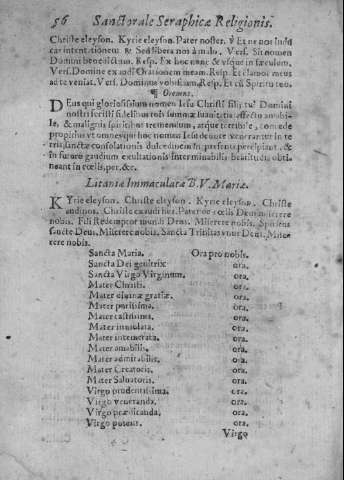 56 Sanctorale Seraphicæ Religionis.
Christe eleyson. Kyrie eleyson. Pater noster. ℣ Et ne nos indu
cas in tentationem ℟ Sed libera nos à malo. Vers. Sit nomen
Domini benedictum. Resp. Ex hoc nunc & vsque in sæculum.
Vers. Domine exaudi Orationem meam. Resp. Et clamor meus
ad te veniat. Vers. Dominus vobiscum. Resp. Et cũ Spiritu tuo.
¶ Oremus.
Deus qui gloriosissimum nomen Iesu Christi filij tui Domini
nostri fecisti fidelibus tuis summæ suauitatis affectu amabi-
le, & malignis spiritibus tremendum, atque terribile, concede
propitius vt omnes qui hoc nomen Iesu deuote venerantur in te
rris, sanctæ consolationis dulcedinem in præsenti percipiant, &
in futuro gaudium exultationis interminabilis beatitudinis obti
neant in cœlis, per, &c.
Litaniæ Immaculatæ B. V. Mariæ.
Kyrie eleyson. Christe eleyson. Kyrie eleyson. Christe
audi nos. Christe exaudi nos. Pater de cœlis Deus miserere
nobis. Fili Redemptor mundi Deus. Miserere nobis. Spiritus
sancte Deus. Miserere nobis. Sancta Trinitas vnus Deus. Mise
rere nobis.
Sancta Maria. Ora pro nobis.
Sancta Dei genitrix ora.
Sancta Virgo Virginum. ora.
Mater Christi. ora.
Mater diuinæ gratiæ. ora.
Mater purissima. ora.
Mater castissima. ora.
Mater inuiolata. ora.
Mater intemerata. ora.
Mater amabilis. ora.
Mater admirabilis. ora.
Mater Creatoris. ora.
Mater Saluatoris. ora.
Virgo prudentissima. ora.
Virgo veneranda. ora.
Virgo prædicanda. ora.
Virgo potens. ora.
Virgo